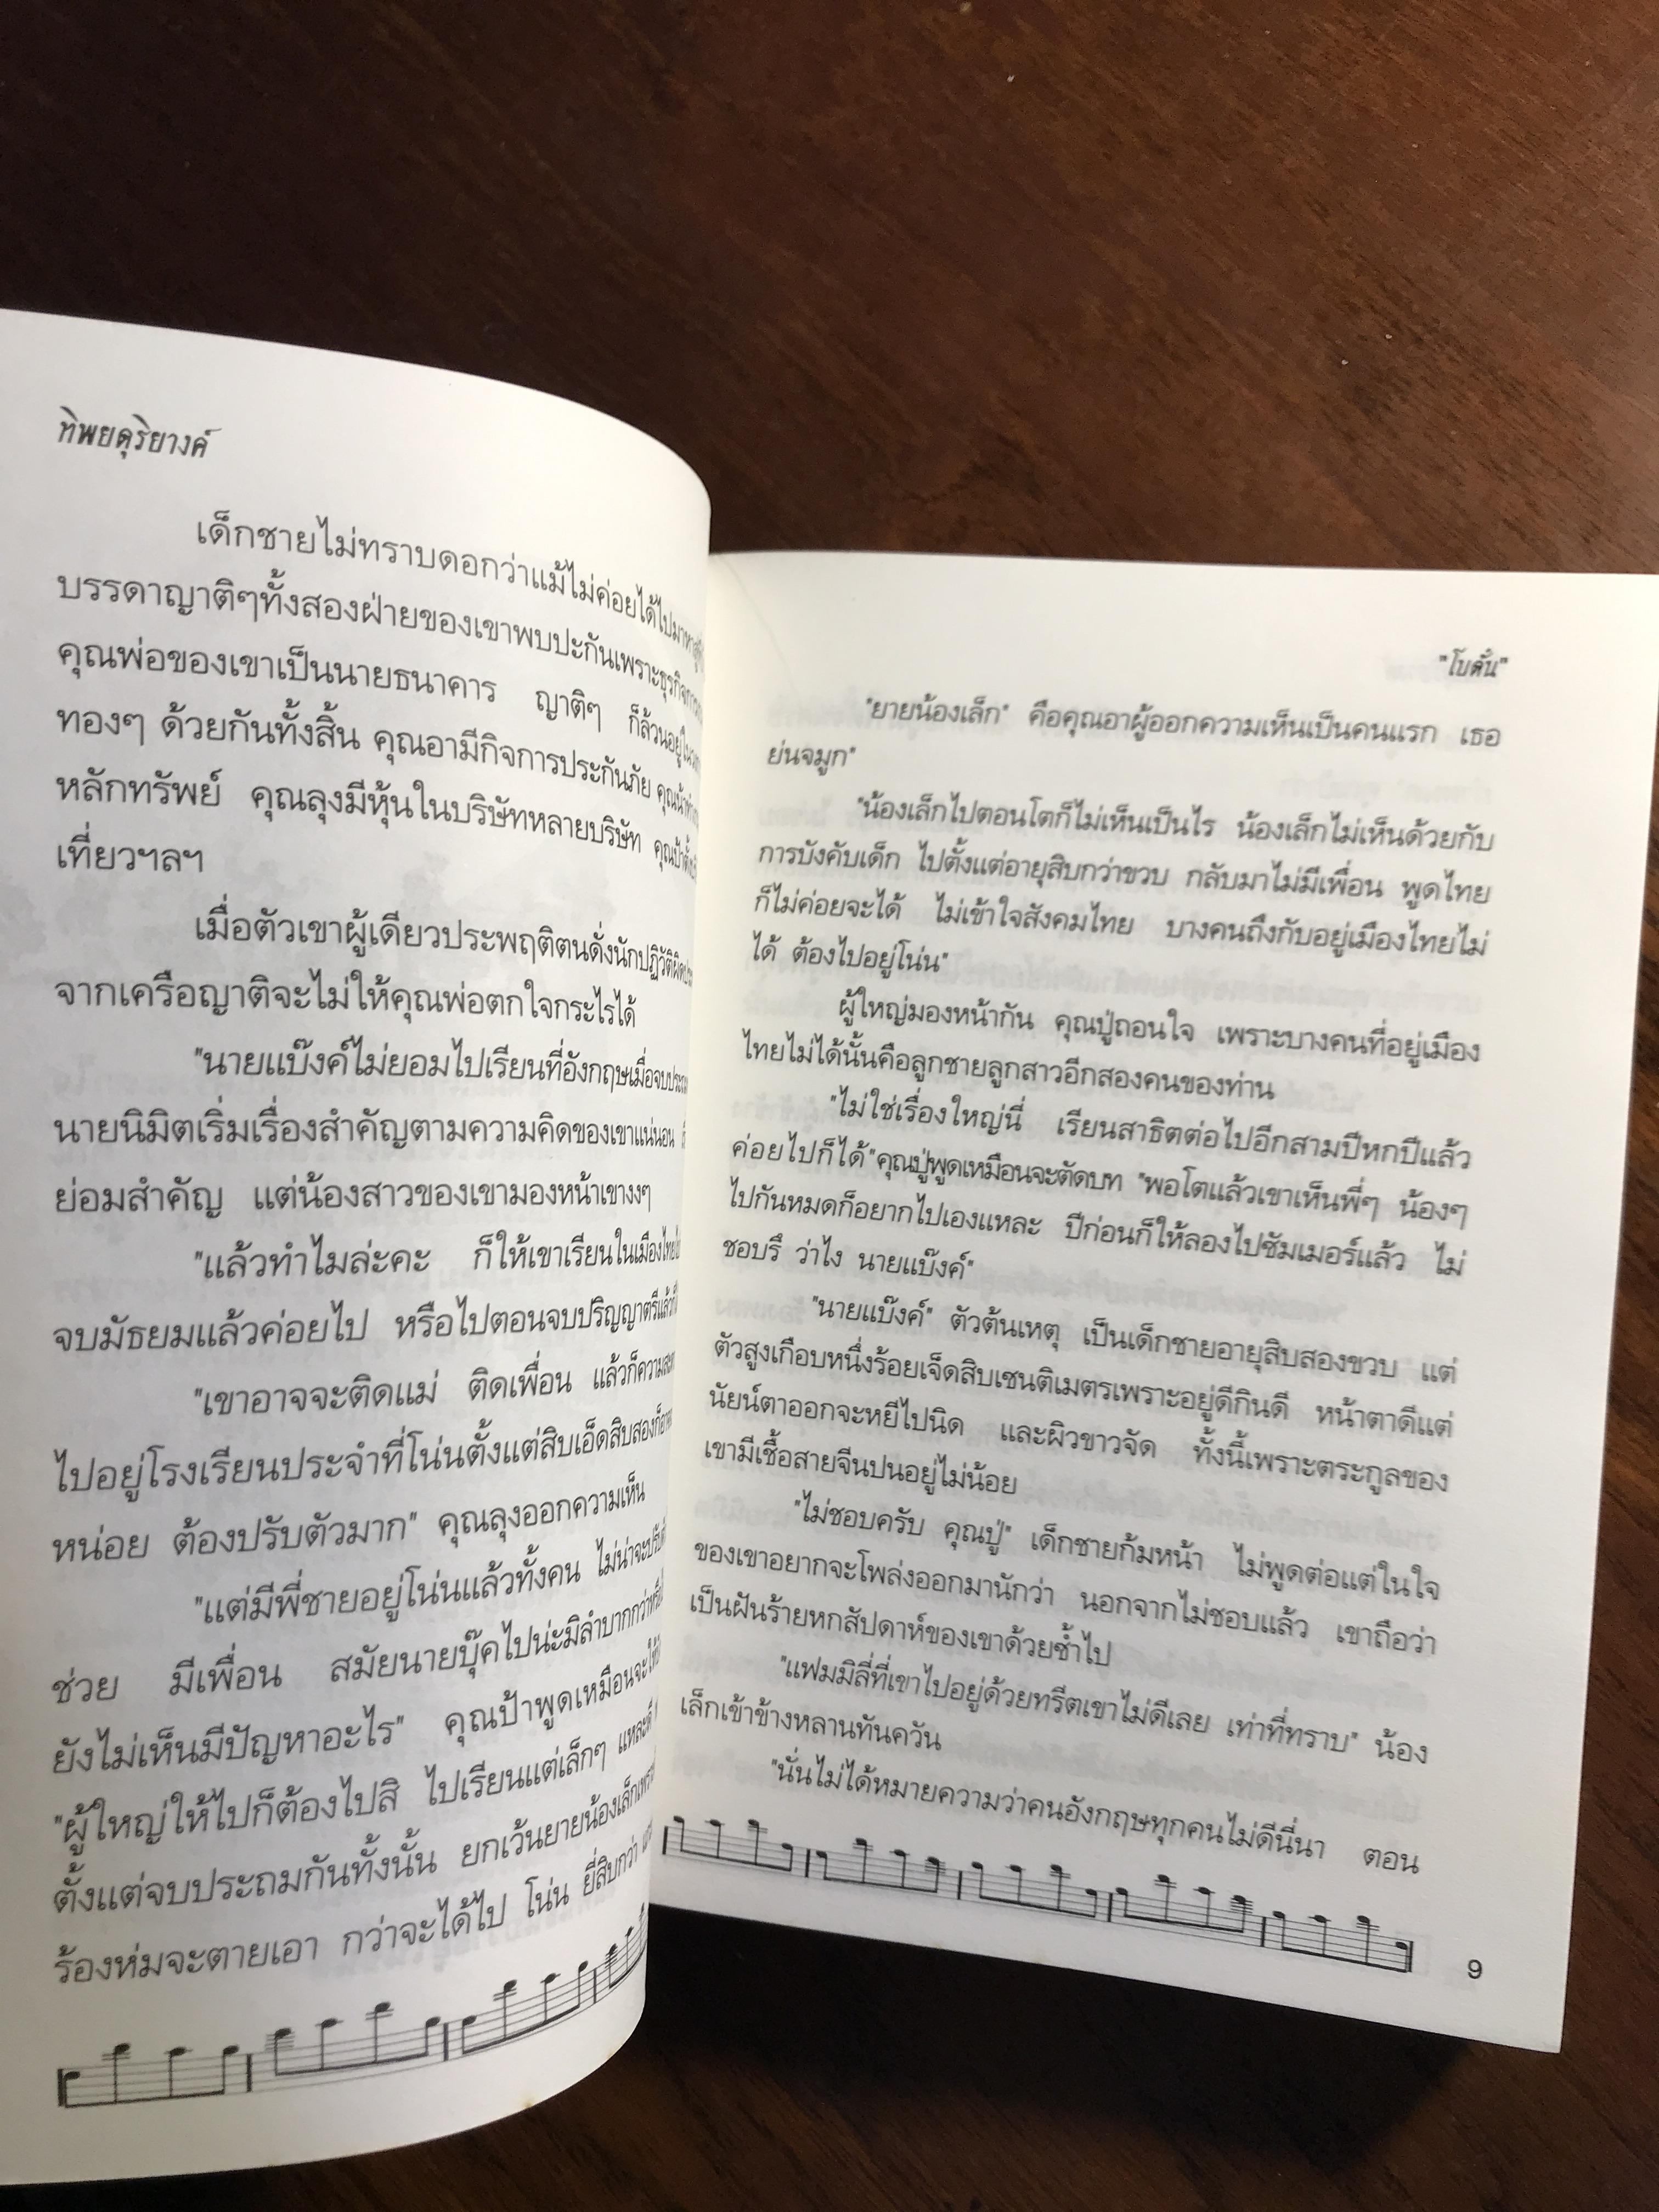 ทิพยดุริยางค์
เด็กชายไม่ทราบดอกว่าแม้ไม่ค่อยได้ไปมาหาสู่
บรรดาญาติๆทั้งสองฝ่ายของเขาพบปะกันเพราะธุรกิจ
คุณพ่อของเขาเป็นนายธนาคาร ญาติๆ ก็ล้วนอยู่ใน
ทองๆ ด้วยกันทั้งสิ้น คุณอามีกิจการประกันภัย คุณน้า
หลักทรัพย์ คุณลุงมีหุ้นในบริษัทหลายบริษัท คุณป้า
เที่ยวฯลฯ
เมื่อตัวเขาผู้เดียวประพฤติตนดั่งนักปฏิวัติผิด
จากเครือญาติจะไม่ให้คุณพ่อตกใจกระไรได้
"นายแบ๊งค์ไม่ยอมไปเรียนที่อังกฤษเมื่อจบ
นายนิมิตเริ่มเรื่องสำคัญตามความคิดของเขาแน่นอน
ย่อมสำคัญ แต่น้องสาวของเขามองหน้าเขางงๆ
"แล้วทำไมล่ะคะ ก็ให้เขาเรียนในเมืองไทย
จบมัธยมแล้วค่อยไป หรือไปตอนจบปริญญาตรีแล้ว
"เขาอาจจะติดแม่ ติดเพื่อน แล้วก็ความ
ไปอยู่โรงเรียนประจำที่โน่นตั้งแต่สิบเอ็ดสิบสอง
หน่อย ต้องปรับตัวมาก" คุณลุงออกความเห็น
"แต่มีพี่ชายอยู่โน่นแล้วทั้งคน ไม่น่าจะ
ช่วย มีเพื่อน สมัยนายบุ๊คไปน่ะมิลำบากกว่า
ยังไม่เห็นมีปัญหาอะไร" คุณป้าพูดเหมือนจะ
"ผู้ใหญ่ให้ไปก็ต้องไปสิ ไปเรียนแต่เล็กๆ แหละดี
ตั้งแต่จบประถมกันทั้งนั้น ยกเว้นยายน้องเล็ก
ร้องห่มจะตายเอา กว่าจะได้ไป โน่น ยี่สิบกว่า
"โบตั๋น"
"ยายน้องเล็ก" คือคุณอาผู้ออกความเห็นเป็นคนแรก เธอ
ย่นจมูก"
"น้องเล็กไปตอนโตก็ไม่เห็นเป็นไร น้องเล็กไม่เห็นด้วยกับ
การบังคับเด็ก ไปตั้งแต่อายุสิบกว่าขวบ กลับมาไม่มีเพื่อน พูดไทย
ก็ไม่ค่อยจะได้ ไม่เข้าใจสังคมไทย บางคนถึงกับอยู่เมืองไทยไม่
ได้ ต้องไปอยู่โน่น"
ผู้ใหญ่มองหน้ากัน คุณปู่ถอนใจ เพราะบางคนที่อยู่เมือง
ไทยไม่ได้นั้นคือลูกชายลูกสาวอีกสองคนของท่าน
"ไม่ใช่เรื่องใหญ่นี่ เรียนสาธิตต่อไปอีกสามปีหกปีแล้ว
ค่อยไปก็ได้"คุณปู่พูดเหมือนจะตัดบท "พอโตแล้วเขาเห็นพี่ๆ น้องๆ
ไปกันหมดก็อยากไปเองแหละ ปีก่อนก็ให้ลองไปซัมเมอร์แล้ว ไม่
ชอบรึ ว่าไง นายแบ๊งค์"
"นายแบ๊งค์" ตัวต้นเหตุ เป็นเด็กชายอายุสิบสองขวบ แต่
ตัวสูงเกือบหนึ่งร้อยเจ็ดสิบเซนติเมตรเพราะอยู่ดีกินดี หน้าตาดีแต่
นัยน์ตาออกจะหยีไปนิด และผิวขาวจัด ทั้งนี้เพราะตระกูลของ
เขามีเชื้อสายจีนปนอยู่ไม่น้อย
"ไม่ชอบครับ คุณปู่" เด็กชายก้มหน้า ไม่พูดต่อแต่ในใจ
ของเขาอยากจะโพล่งออกมานักว่า นอกจากไม่ชอบแล้ว เขาถือว่า
เป็นฝันร้ายหกสัปดาห์ของเขาด้วยซ้ำไป
"แฟมมิลี่ที่เขาไปอยู่ด้วยทรีตเขาไม่ดีเลย เท่าที่ทราบ" น้อง
เล็กเข้าข้างหลานทันควัน
"นั่นไม่ได้หมายความว่าคนอังกฤษทุกคนไม่ดีนี่นา ตอน
9